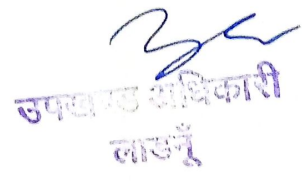 उपखण्ड अधिकारी
लाडनूँ